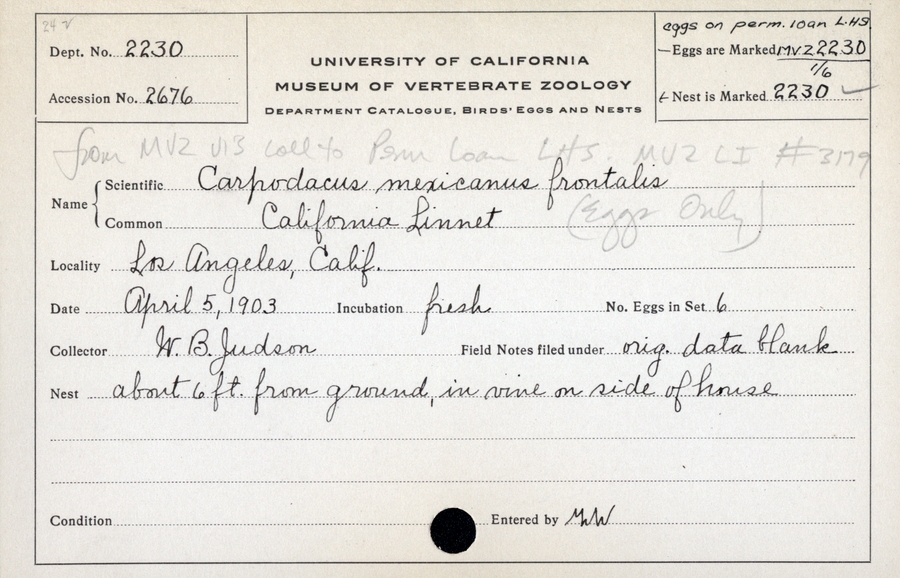 24 v
eggs on perm. loan LHS
Dept. No. 2230
Eggs are Marked MVZ 2230
1/6
UNIVERSITY OF CALIFORNIA
MUSEUM OF VERTEBRATE ZOOLOGY
DEPARTMENT CATALOGUE, BIRDS' EGGS AND NESTS
Accession No. 2676
Nest is Marked 2230
from MVZ VIS coll to Perm Loan LHS. MVZ LI #3179
Name
Scientific Carpodacus mexicanus frontalis
Common California Linnet (Eggs Only)
Locality Los Angeles, Calif.
Date April 5, 1903 Incubation fresh No. Eggs in Set 6
Collector W. B. Judson Field Notes filed under orig. data blank
Nest about 6 ft. from ground, in vine on side of house
Condition Entered by